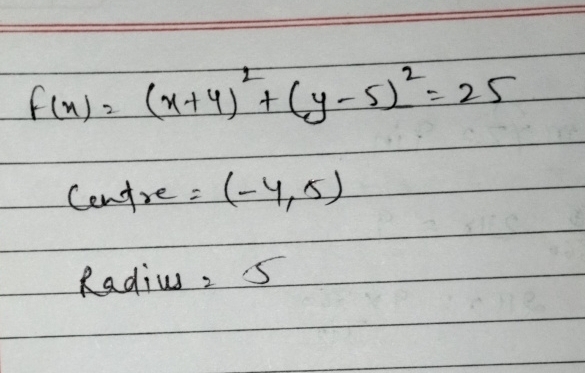 f(x) = (x+4)² + (y-5)² = 25
Centre = (-4,5)
Radius = 5